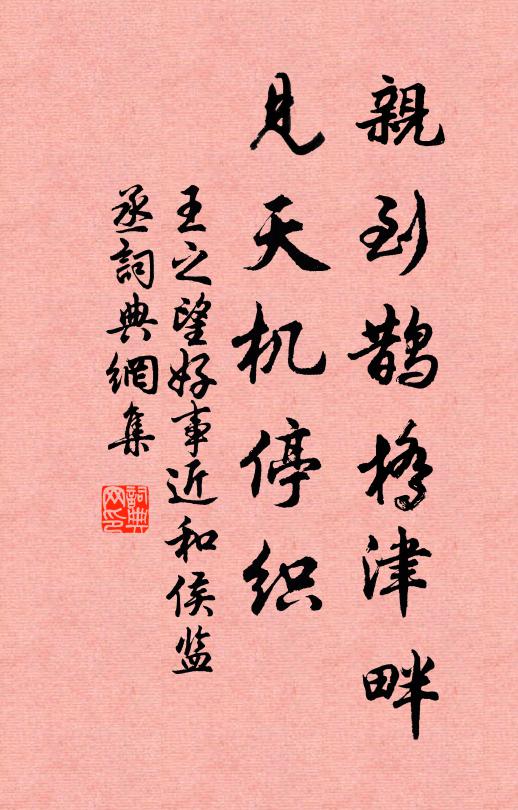 親到鵲橋津畔
見天机停织
王之望好事近和侯监
丞詞典網集
詞典
网印